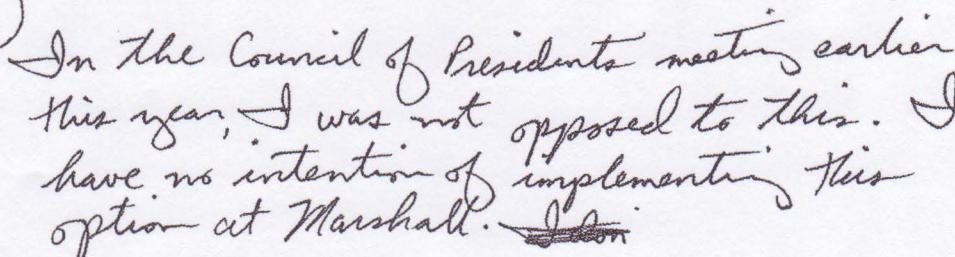 In the Council of Presidents meeting earlier
this year, I was not opposed to this. I
have no intention of implementing this
option at Marshall. I don